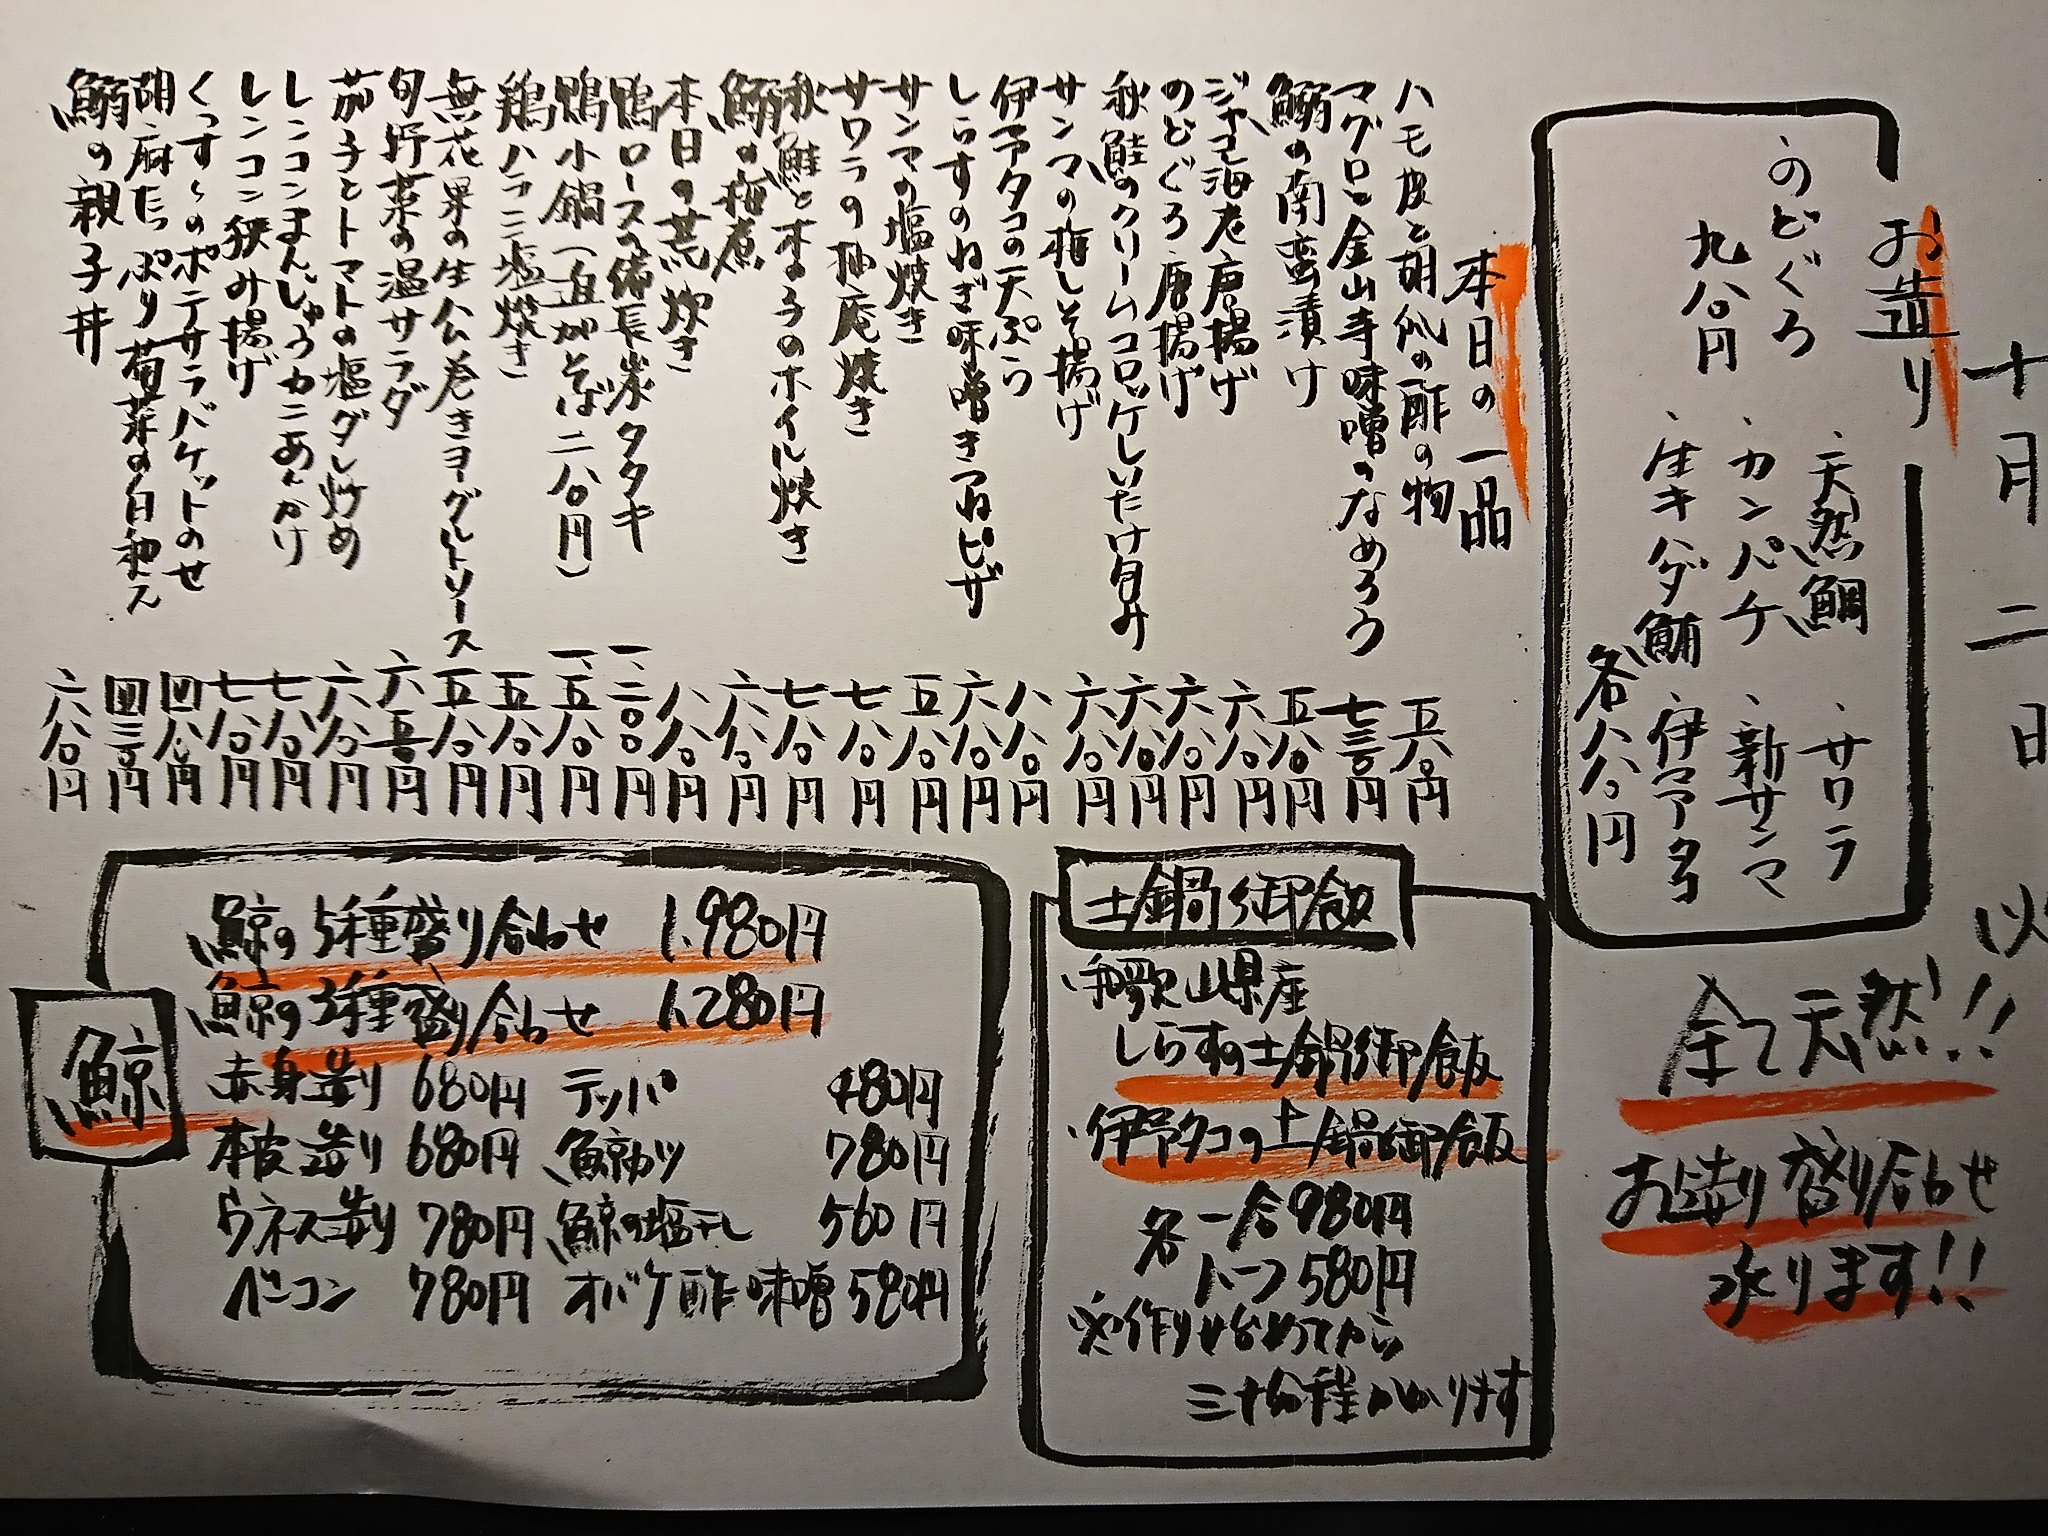 十月二日
お造り
・のどぐろ
九八〇円
・天然鯛
・カンパチ
・生キハダ鮪
・サワラ
・新サンマ
・伊予タコ
各八八〇円
全て天然!!
お造り盛り合わせ
承ります!!
本日の一品
ハモ皮と胡瓜の酢の物 五八〇円
マグロと金山寺味噌のなめろう 七三〇円
鰯の南蛮漬け 五八〇円
ジャコ海老唐揚げ 六八〇円
のどぐろ唐揚げ 六八〇円
秋鮭のクリームコロッケしいたけ包み 六八〇円
サンマの梅しそ揚げ 六八〇円
伊予タコの天ぷら 八八〇円
しらすのねぎ味噌きつねピザ 六八〇円
サンマの塩焼き 五八〇円
サワラの柚庵焼き 七八〇円
秋鮭と木の子のホイル焼き 七八〇円
鰯の梅煮 六八〇円
本日の荒炊き 八八〇円
鴨ロースの備長炭タタキ 一、二〇〇円
鴨小鍋(追加そば二八〇円) 一、五八〇円
鶏ハラミ塩焼き 五八〇円
無花果の生ハム巻きヨーグルトソース 五八〇円
旬野菜の温サラダ 六五〇円
茄子とトマトの塩ダレ炒め 六八〇円
レンコンまんじゅうカニあんかけ 七八〇円
レンコン挟み揚げ 七八〇円
くっすんのポテサラバケットのせ 四八〇円
胡麻たっぷり菊菜の白和え 四三〇円
鰯の親子丼 六八〇円
土鍋御飯
・和歌山県産
しらすの土鍋御飯
・伊予タコの土鍋御飯
各 一合980円
ハーフ580円
※作りはじめてから
三十分程かかります
鯨
鯨の5種盛り合わせ 1,980円
鯨の3種盛り合わせ 1,280円
赤身造り 680円 テッパ 480円
本皮造り 680円 鯨カツ 780円
ウネス造り 780円 鯨の塩干し 560円
ベーコン 780円 オバケ酢味噌 580円